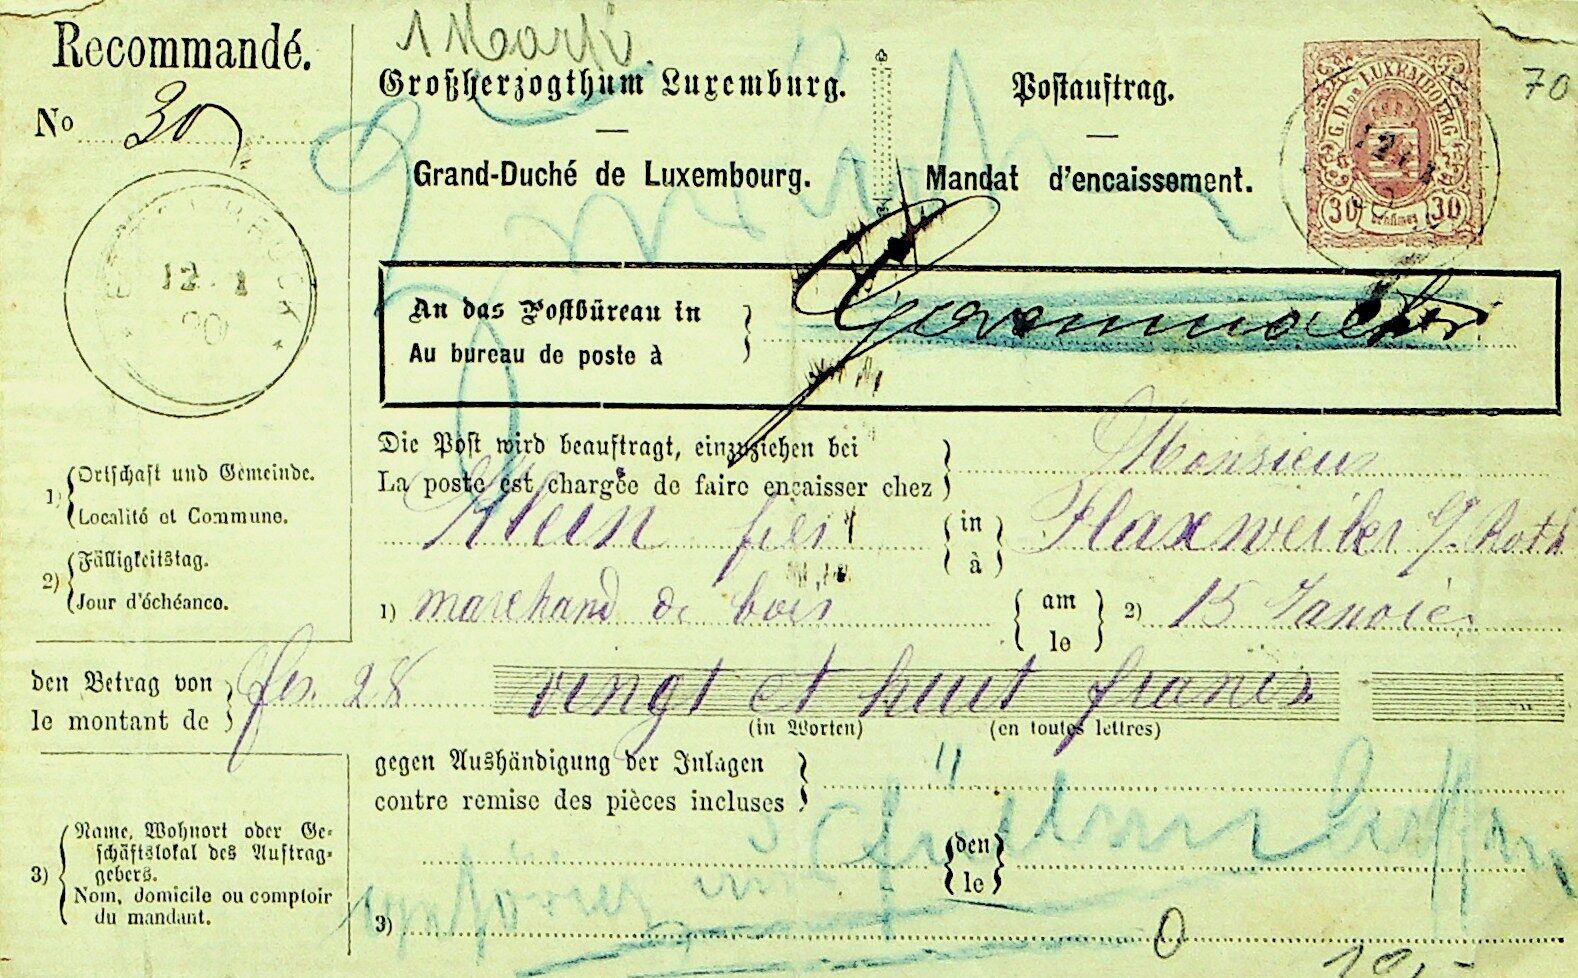 1 Mark
Recommandé.
No 30
70
Großherzogthum Luxemburg.
Postauftrag.
Grand-Duché de Luxembourg.
Mandat d'encaissement.
G. D. DE LUXEMBOURG
30 centimes 30
12 1
90
An das Postbüreau in
Au bureau de poste à
Grevenmacher
Die Post wird beauftragt, einzuziehen bei
La poste est chargée de faire encaisser chez
Monsieur
Klein fils
in
à
Flaxweiler
1) Ortschaft und Gemeinde.
Localité et Commune.
2) Fälligkeitstag.
Jour d'échéance.
1) marchand de bois
am
le
2) 15 Janvier
den Betrag von
le montant de
frs. 28 vingt et huit francs
(in Worten) (en toutes lettres)
gegen Aushändigung der Inlagen
contre remise des pièces incluses
den
le
3) Name, Wohnort oder Ge-
schäftslokal des Auftrag-
gebers.
Nom, domicile ou comptoir
du mandant.
3)